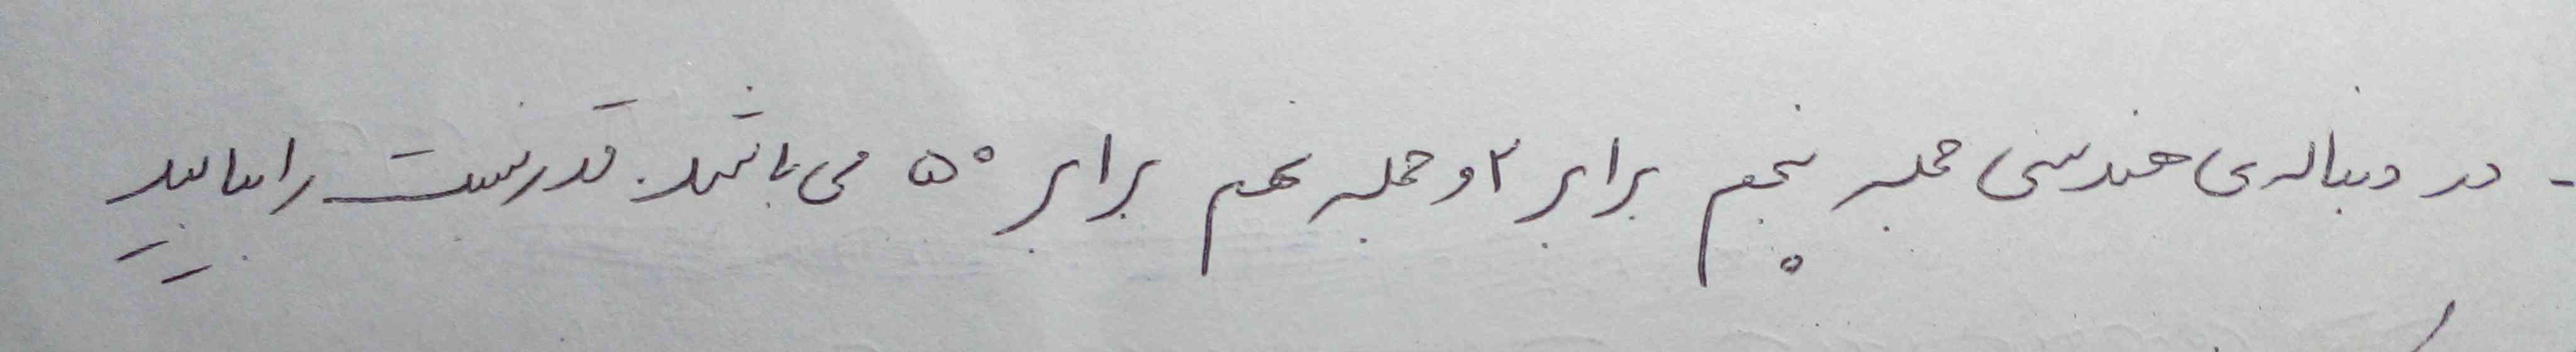 - در دنباله‌ی هندسی جمله پنجم برابر ۲ و جمله نهم برابر ۵۰ می‌باشد. قدرنسبت را بیابید